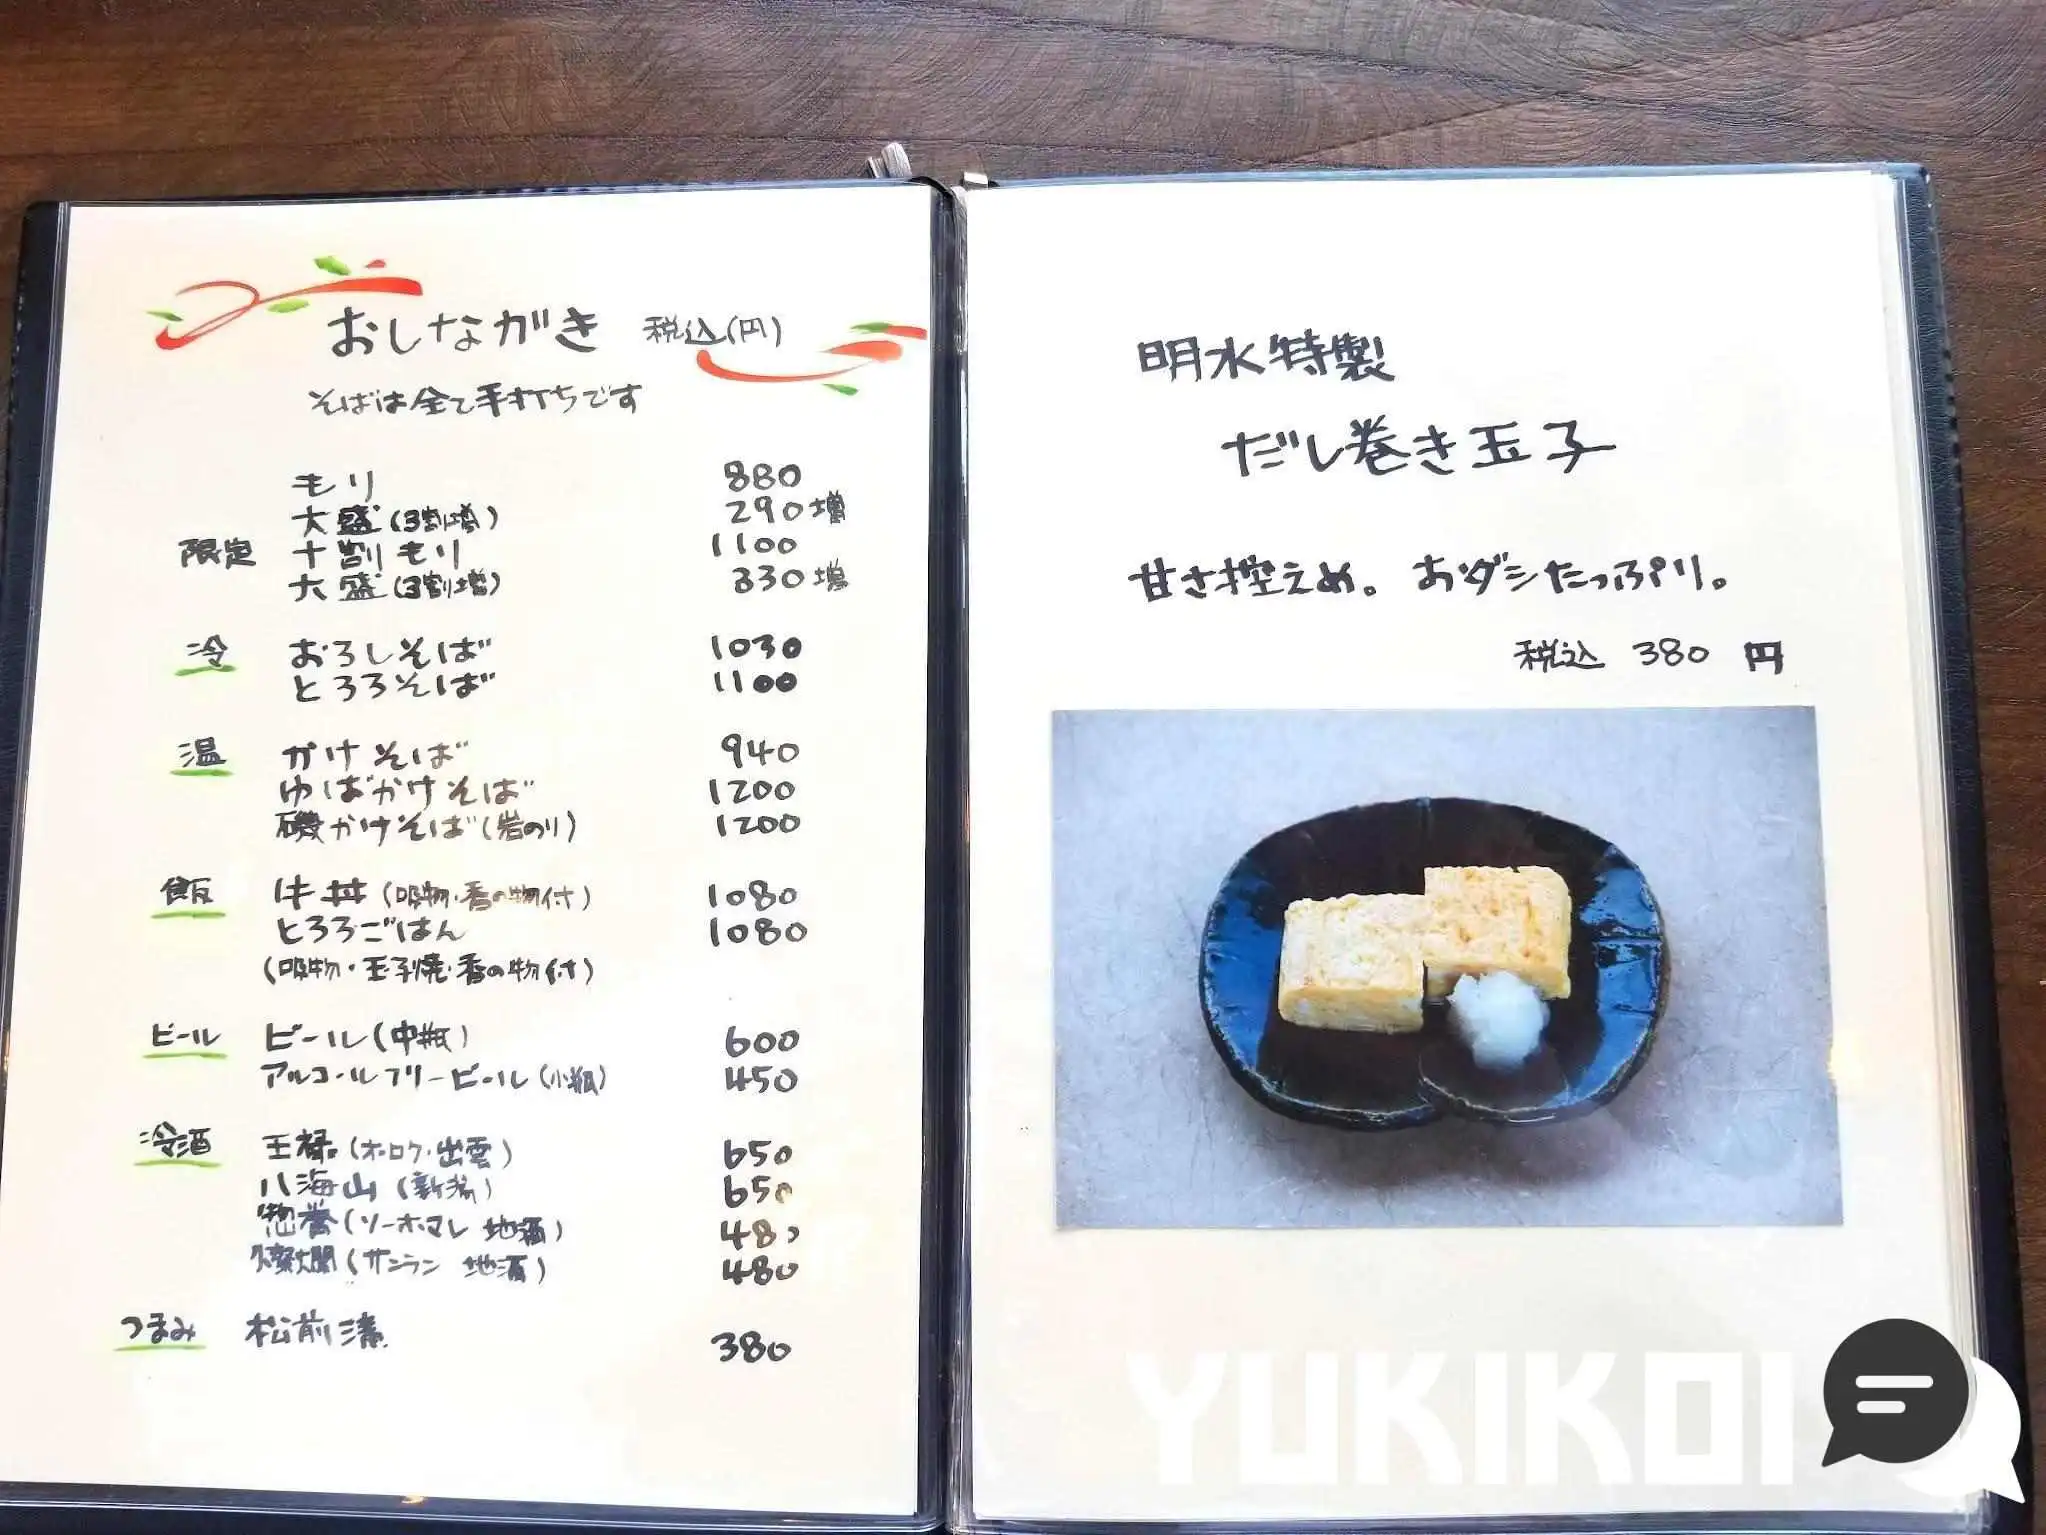 おしながき 税込(円)
そばは全て手打ちです
もり 880
大盛(3割増) 290増
限定 十割もり 1100
大盛(3割増) 330増
冷 おろしそば 1030
とろろそば 1100
温 かけそば 940
ゆばかけそば 1200
磯かけそば(岩のり) 1200
飯 牛丼(吸物・香の物付) 1080
とろろごはん 1080
(吸物・玉子焼・香の物付)
ビール ビール(中瓶) 600
アルコールフリービール(小瓶) 450
冷酒 王禄(オーロク・出雲) 650
八海山(新潟) 650
惣誉(ソーホマレ 地酒) 480
燦爛(サンラン 地酒) 480
つまみ 松前漬 380
明水特製
だし巻き玉子
甘さ控えめ。おダシたっぷり。
税込 380 円
YUKIKOI